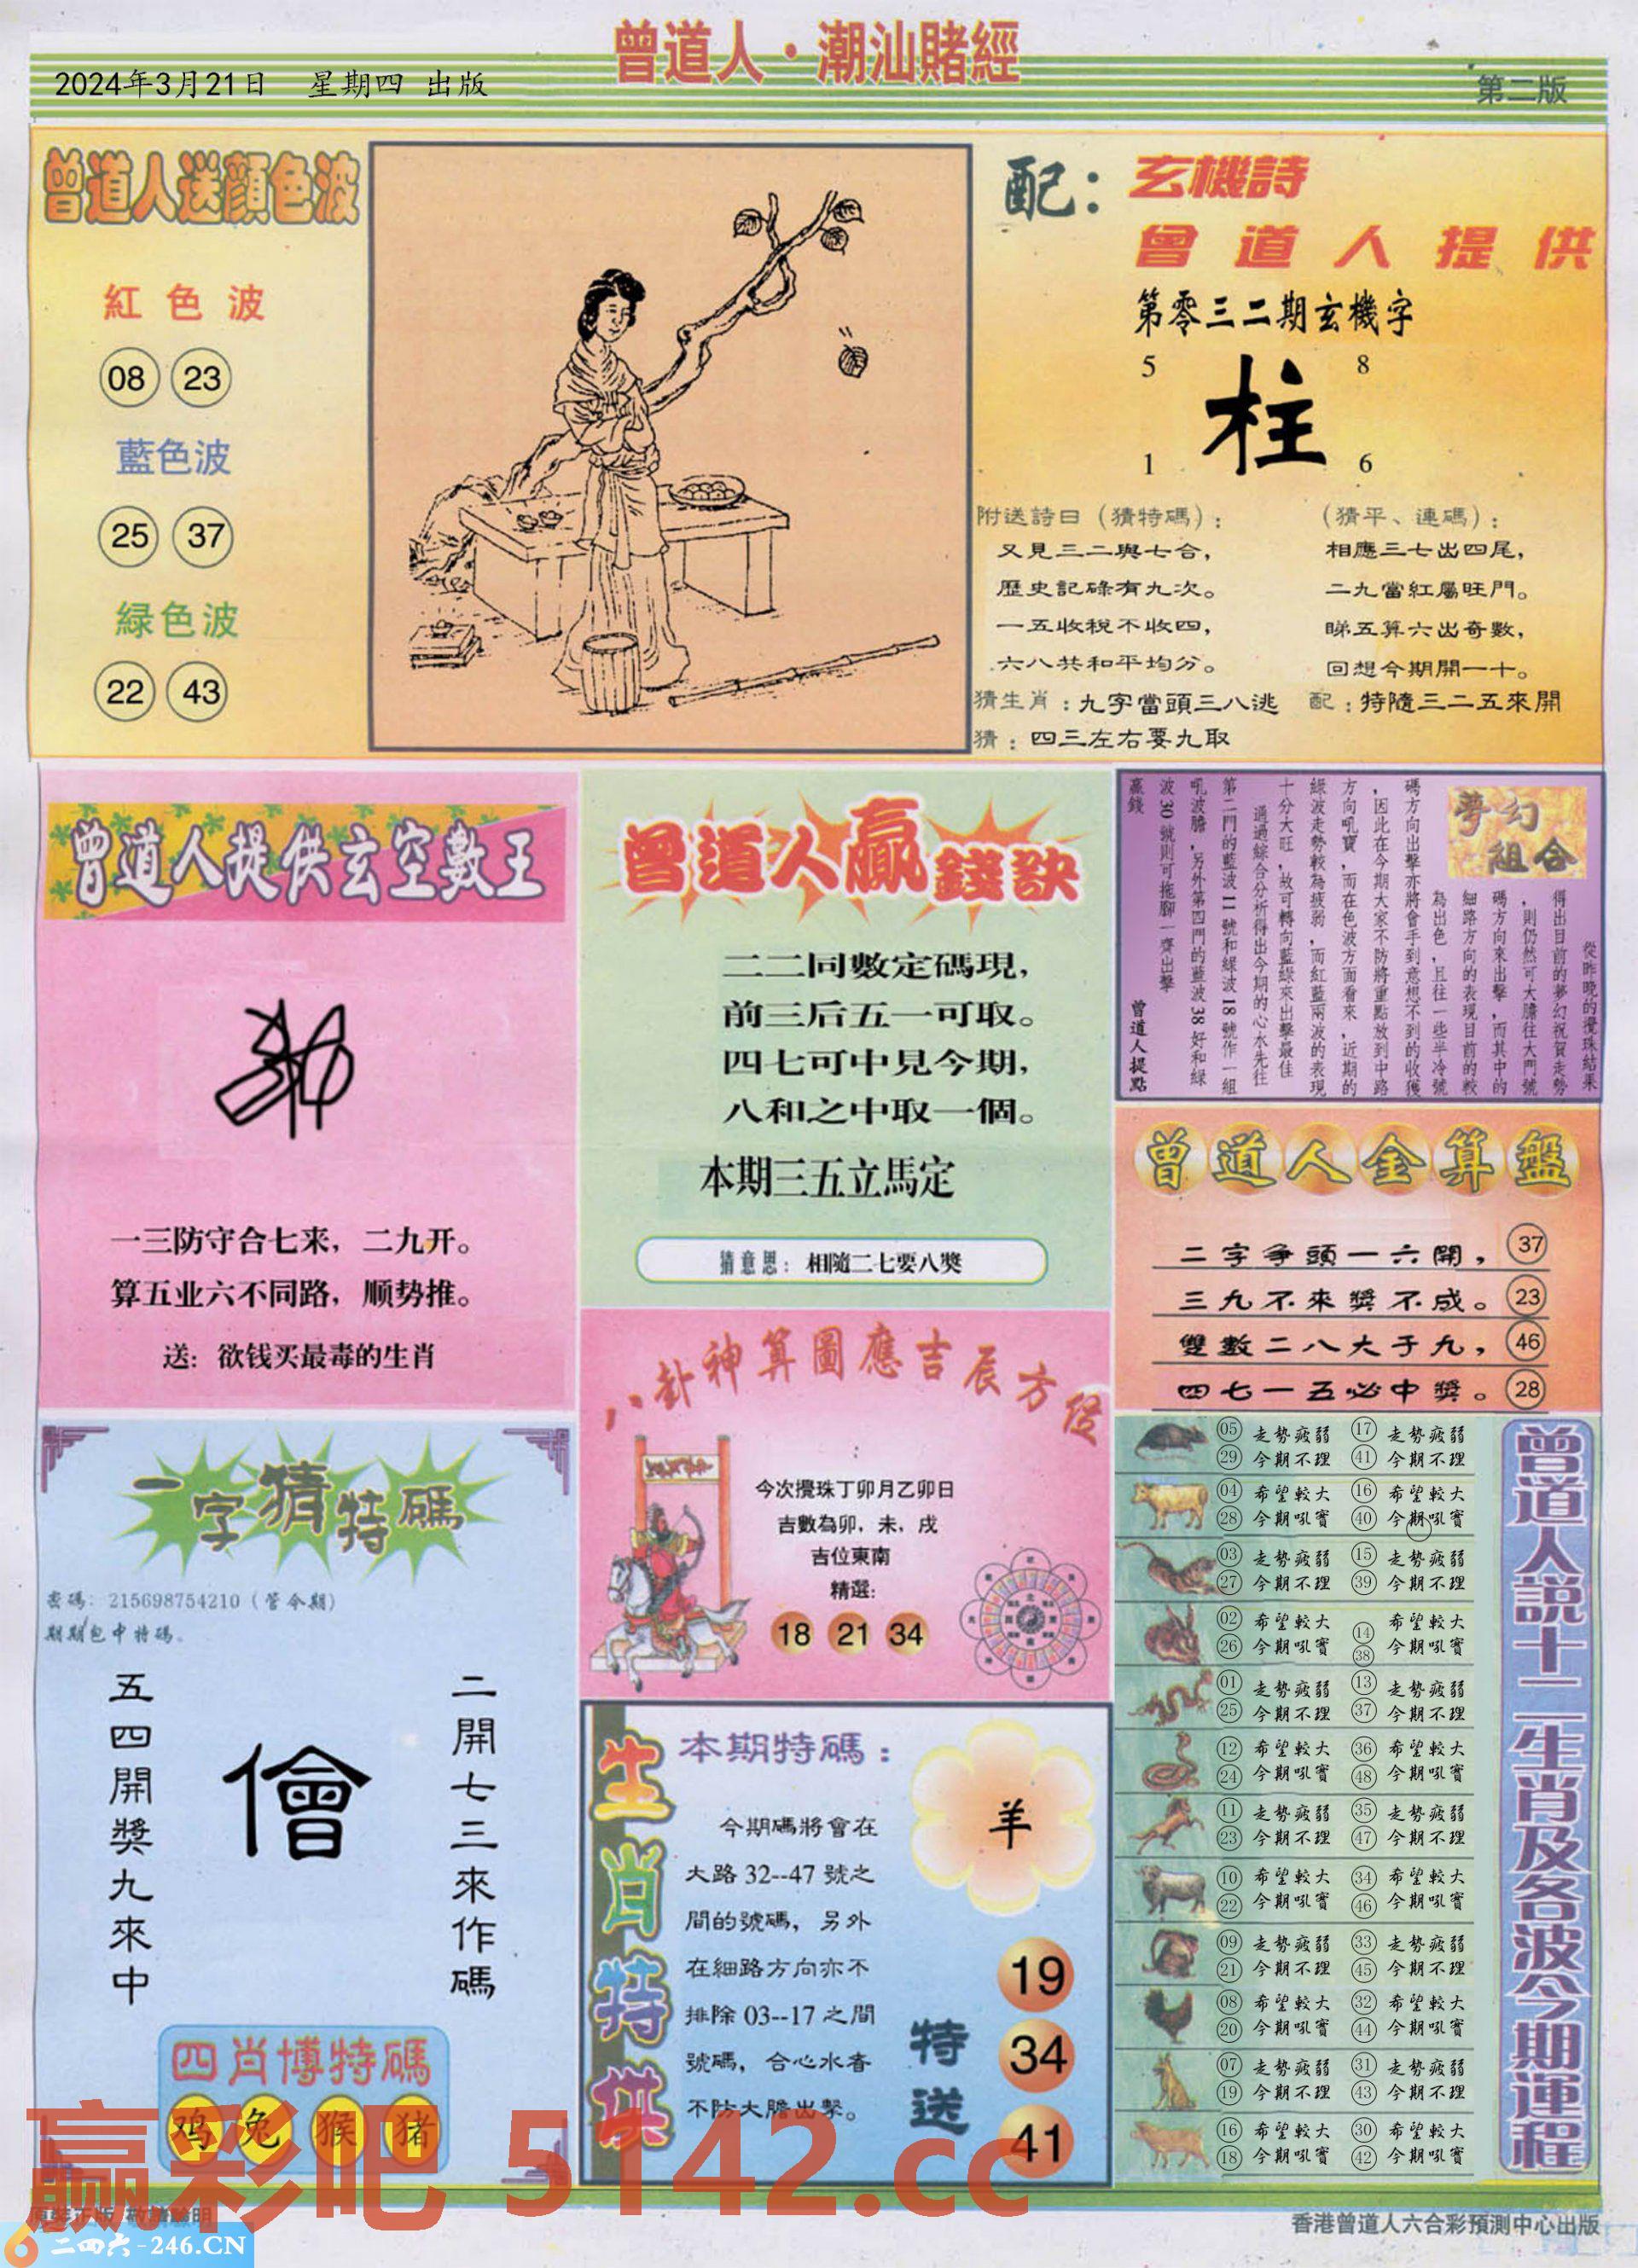 曾道人·潮汕賭經
2024年3月21日 星期四 出版
第二版
曾道人送顏色波
紅色波
08 23
藍色波
25 37
緑色波
22 43
配：玄機詩
曾道人提供
第零三二期玄機字
5 8
柱
1 6
附送詩日（猜特碼）：
又見三二與七合，
歷史記碌有九次。
一五收稅不收四，
六八共和平均分。
（猜平、連碼）：
相應三七出四尾，
二九當紅屬旺門。
睇五算六出奇數，
回想今期開一十。
猜生肖：九字當頭三八逃
配：特隨三二五來開
猜：四三左右要九取
曾道人提供玄空數王
一三防守合七来，二九开。
算五业六不同路，顺势推。
送：欲钱买最毒的生肖
曾道人贏錢訣
二二同數定碼現，
前三后五一可取。
四七可中見今期，
八和之中取一個。
本期三五立馬定
猜意思：相隨二七要八獎
夢幻
組合
從昨晚的攪珠結果
得出目前的夢幻祝賀走勢
，則仍然可大膽往大門號
碼方向來出擊，而其中的
細路方向的表現目前的較
為出色，且往一些半冷號
碼方向出擊亦將會手到意想不到的收獲
，因此在今期大家不防將重點放到中路
方向吼寶，而在色波方面看來，近期的
綠波走勢較為疲弱，而紅藍兩波的表現
十分大旺，故可轉向藍綠來出擊最佳
通過綜合分析得出今期的心水先往
第二門的藍波11號和綠波18號作一組
吼波膽，另外第四門的藍波38好和綠
波30號則可拖腳一齊出擊
贏錢
曾道人提點
曾道人金算盤
二字爭頭一六開， 37
三九不來獎不成。 23
雙數二八大于九， 46
四七一五必中獎。 28
八卦神算圖應吉辰方位
今次攪珠丁卯月乙卯日
吉數為卯，未，戌
吉位東南
精選：
18 21 34
一字猜特碼
密碼：215698754210（管令期）
期期包中特碼。
五四開獎九來中
儈
二開七三來作碼
四肖博特碼
鸡 兔 猴 猪
生肖特供
本期特碼：
今期碼將會在
大路32--47號之
間的號碼，另外
在細路方向亦不
排除03--17之間
號碼，合心水者
不防大膽出擊。
羊
特送
19
34
41
曾道人說十二生肖及各波今期運程
05 走勢疲弱 17 走勢疲弱
29 今期不理 41 今期不理
04 希望較大 16 希望較大
28 今期吼寶 40 今期吼寶
03 走勢疲弱 15 走勢疲弱
27 今期不理 39 今期不理
02 希望較大 14 希望較大
26 今期吼寶 38 今期吼寶
01 走勢疲弱 13 走勢疲弱
25 今期不理 37 今期不理
12 希望較大 36 希望較大
24 今期吼寶 48 今期吼寶
11 走勢疲弱 35 走勢疲弱
23 今期不理 47 今期不理
10 希望較大 34 希望較大
22 今期吼寶 46 今期吼寶
09 走勢疲弱 33 走勢疲弱
21 今期不理 45 今期不理
08 希望較大 32 希望較大
20 今期吼寶 44 今期吼寶
07 走勢疲弱 31 走勢疲弱
19 今期不理 43 今期不理
16 希望較大 30 希望較大
18 今期吼寶 42 今期吼寶
赢彩吧 5142.cc
二四六-246.CN
香港曾道人六合彩預測中心出版